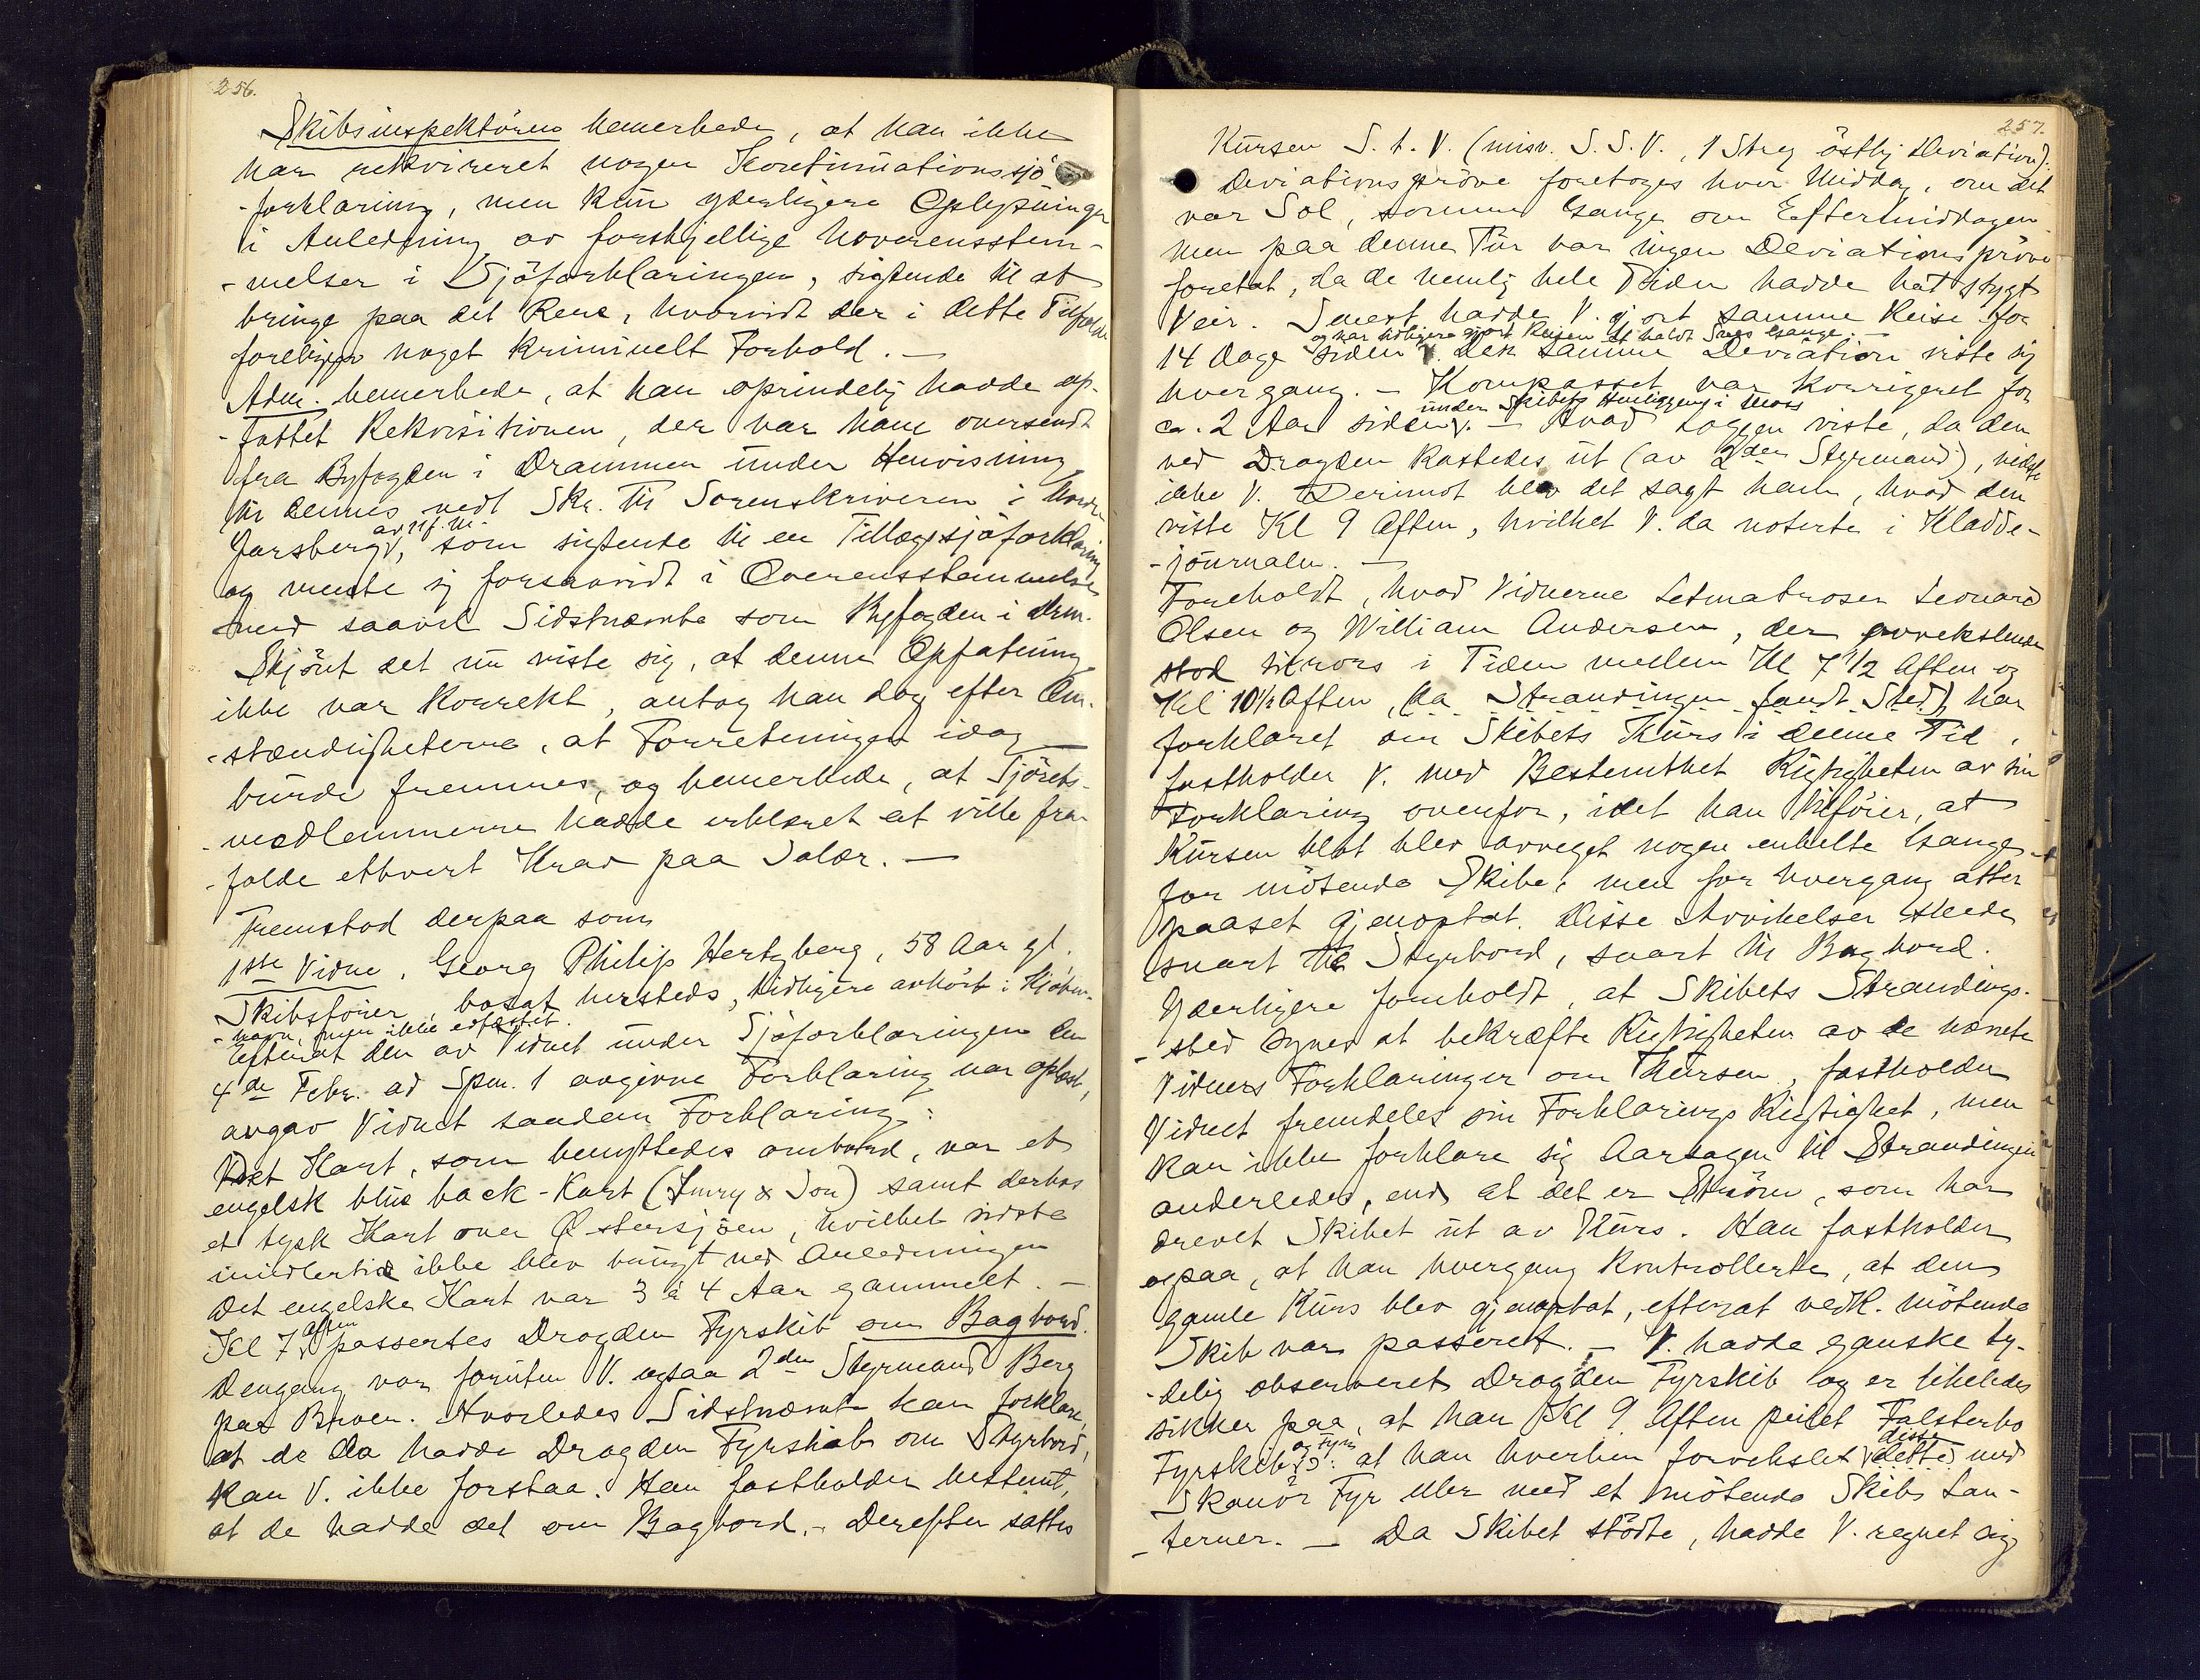 256.
Skibsinspektören bemerkede, at han ikke
har rekvireret nogen Kontinuationssjö
-forklaring, men kun yderligere Oplysninger
i Anledning av forskjellige Uoverensstem-
-melser i Sjöforklaringen, sigtende til at
bringe paa det Rene, hvorvidt der i dette Tilfælde
foreligger noget kriminelt Forhold. —
Adm. bemerkede, at han oprindelig hadde op-
-fattet Rekvisitionen, der var ham oversendt
fra Byfogden i Drammen under Henvisning
til dennes vedl. Skr. til Sorenskriveren i Nordre
av 11 f. M.
Jarsberg, som sigtende til en Tillægssjöforklaring
og mente sig forsaavidt i Overensstemmelse
med saavel Sidstnævnte som Byfogden i Drm.
Skjönt det nu viste sig, at denne Opfatning
ikke var korrekt, antog han dog efter Om-
-stændigheterne, at Forretningen idag
burde fremmes, og bemerkede, at Sjörets-
-medlemmerne hadde erklæret at ville fra-
-falde ethvert Krav paa Salær. —
Fremstod derpaa som
1ste Vidne, Georg Philip Hertzberg, 58 Aar gl.
Skibsförer, bosat hersteds, tidligere avhört i Kjöben-
-havn, men ikke edfæstet.
Efterat den av Vidnet under Sjöforklaringen den
4de Febr. ad Spm. 1 avgivne Forklaring var oplæst,
avgav Vidnet saadan Forklaring:
Det Kart, som benyttedes ombord, var et
engelsk blue back-Kart (Imry & Son) samt derhos
et tysk Kart over Østersjöen, hvilket sidste
imidlertid ikke blev brugt ved Anledningen
Det engelske Kart var 3 à 4 Aar gammelt. —
Kl 7 aften passertes Drogden Fyrskib om Bagbord.
Dengang var foruten V. ogsaa 2den Styrmand Berg
paa Broen. Hvorledes Sidstnævnte kan forklare,
at de da hadde Drogden Fyrskib om Styrbord,
kan V. ikke forstaa. Han fastholder bestemt,
at de hadde det om Bagbord. – Derefter sattes
257.
Kursen S. t. V. (misv. S. S. V., 1 Streg östlig Deviation).
Deviationspröve foretoges hver Middag, om det
var Sol, somme Gange om Eftermiddagen
men paa denne Tur var ingen Deviationspröve
foretat, da de nemlig hele Tiden hadde hat stygt
Veir. Senest hadde V. gjort samme Reise for
og har tidligere gjort Reisen et halvt Snes Gange. —
14 Dage siden. Den samme Deviation viste sig
hvergang. – Kompasset var korrigeret for
under Skibets Henliggen i Moss
ca. 2 Aar siden. – Hvad Loggen viste, da den
ved Drogden kastedes ut (av 2den Styrmand), vidste
ikke V. Derimot blev det sagt ham, hvad den
viste Kl 9 Aften, hvilket V. da noterte i Kladde-
-journalen. —
Foreholdt, hvad Vidnerne Letmatroser Leonard
Olsen og William Andersen, der avvekslende
stod tilrors i Tiden mellem Kl 7 1/2 Aften og
Kl 10 1/2 Aften, (da Strandingen fandt Sted), har
forklaret om Skibets Kurs i denne Tid,
fastholder V. med Bestemthet Rigtigheten av sin
Forklaring ovenfor, idet han tilföier, at
Kursen blot blev avveget nogen enkelte Gange
for mötende Skibe, men for hvergang atter
paaset gjenoptat. Disse Avvikelser skede
snart til Styrbord, snart til Bagbord.
Yderligere foreholdt, at Skibets Strandings-
-sted synes at bekræfte Rigtigheten av de nævnte
Vidners Forklaringer om Kursen, fastholder
Vidnet fremdeles sin Forklarings Rigtighet, men
kan ikke forklare sig Aarsagen til Strandingen
anderledes, end at det er Ström, som har
drevet Skibet ut av Kurs. Han fastholder
ogsaa, at han hvergang kontrollerte, at den
gamle Kurs blev gjenoptat, efterat vedk. mötende
Skib var passeret. – V. hadde ganske ty-
-delig observeret Drogden Fyrskib og er likeledes
sikker paa, at han Kl 9 Aften peilet Falsterbo
og Fyr disse
Fyrskib, at han hverken forvekslet dette med
Skanör Fyr eller med et mötende Skibs Lan-
-terner. — Da Skibet stödte, hadde V. regnet sig